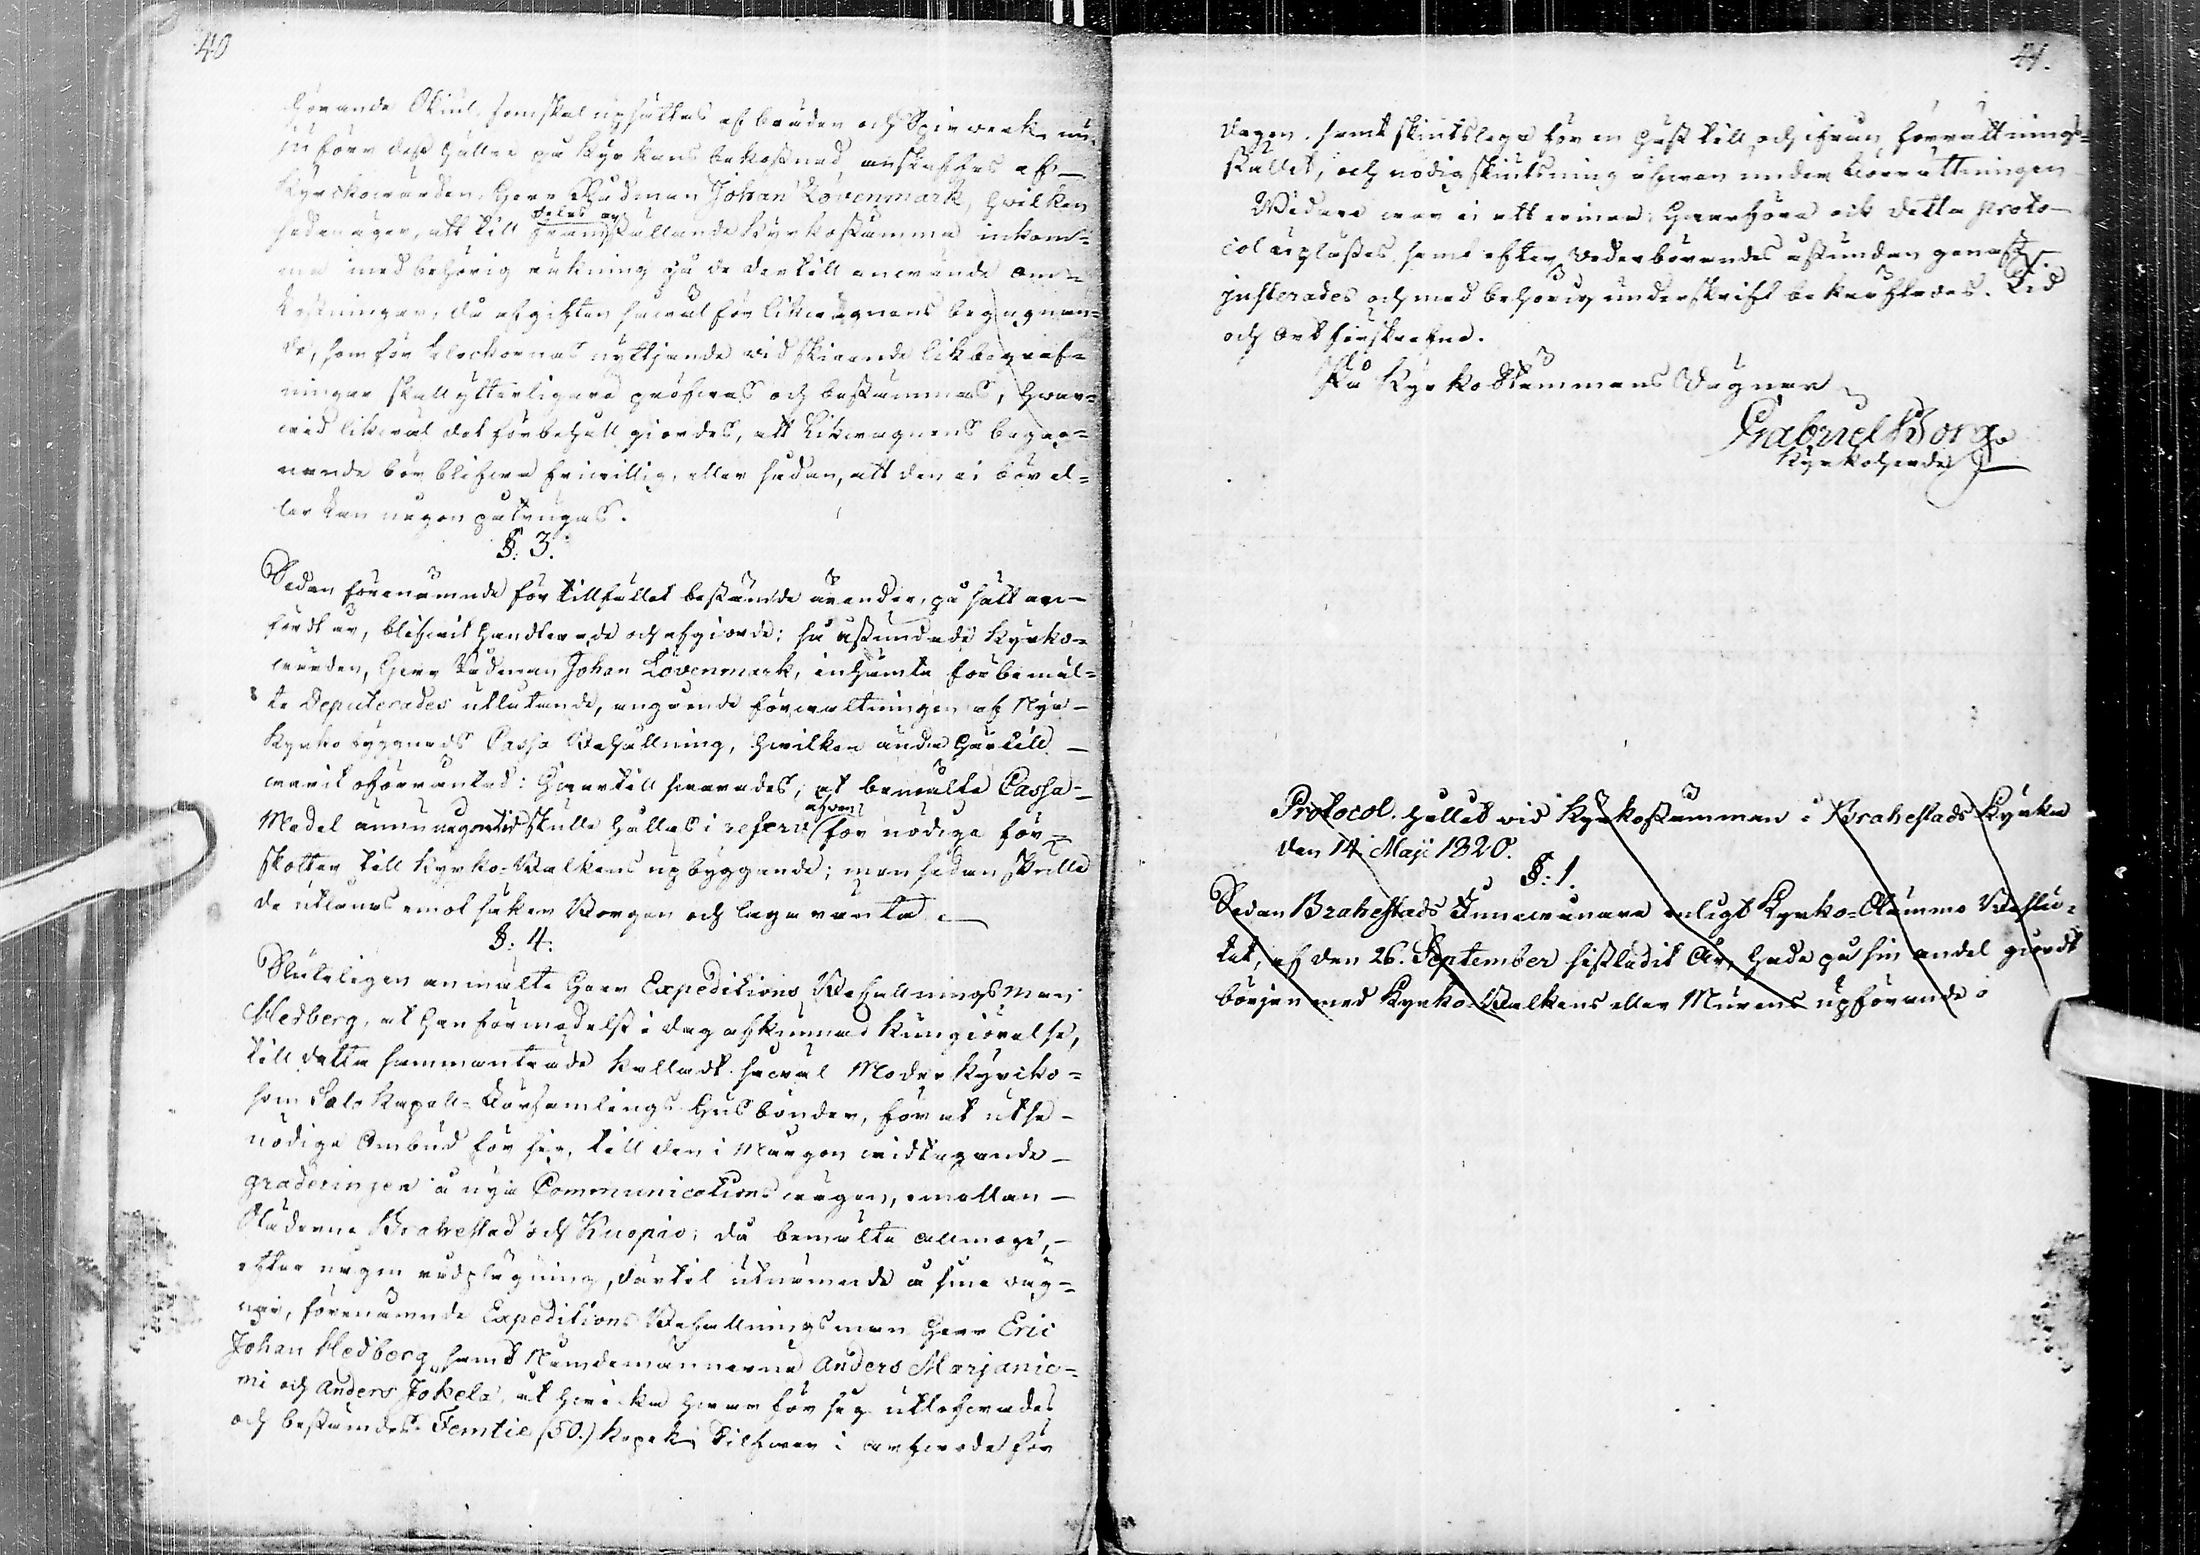 40
hörande Skiul, som skal upsättas af bräder och Spirverk, nu,
ju förr dess hällre på Kyrkans bekostnad, anskaffas af
Kyrkowärden, Herr Rådman Johan Lövenmark, hvilken
sedan äger, att till framställande Kyrkostämma inkom=
ma med behörig räkning på de dertill använde om=
kostningar, då afgiften såwäl för likwagnens begagnan=
de, som för klockornas nyttjande wid skieende likbegraf=
ningar skall ytterligare pröfwas och bestämmas, hwar=
wid likwäl det förbehåll giordes, att Likwagnens begag=
nande bör blifwa friwillig, eller sådan, att den ei bör el=
ler kan någon påtvingas.
§: 3.
Sedan förenämnde för tillfället bestämde ärender, på sätt an=
fördt är, blifwit handterade och afgiorde; så åstundade Kyrko=
wärden, Herr Rådman Johan Lövenmark, inhämta förbemäl=
te Deputerades utlåtande, angående förwaltningen af Nya
Kyrkobyggnads Cassa Behållning, hwilken ända härtill
warit oförräntad: Hwartill swarades, at bemälte Cassa
Medel ännu någon tid skulle hållas i reserv äfwen för nödige för=
skotter till Kyrko-Balkens upbyggande; men sedan skulle
de utlånas emot säker Borgen och laga ränta.
§: 4.
Sluteligen anmälte Herr Expeditions Befallningsman
Hedberg, at han förmedelst i dag afkunnad Kungiörelse,
till detta sammanträde kalladt såwäl Moder Kyrko=
som Salo Kapell-Församlings Husbönder, för at utse
nödige Ombud för sig, till den i Morgon widtagande
graderingen å nya Communications wägen, emellan
Städerne Brahestad och Kuopio; då bemälte allmoge,
efter någon rådplägning, därtil utnämnde å sine wäg=
nar, förenämnde Expeditions Befallningsman Herr Eric
Johan Hedberg samt Nämdemännerne Anders Marjanie=
mi och Anders Jokela, at hwilka hwar för sig utlofwades
och bestämdes Femtie (50.) kopek Silfwer i arfwode för
41.
dagen, samt skiutslega för en häst till och ifrån förrättnings=
stället, och nödig skiutsning äfwen under Förrättningen
Widare war ei att erinra; hwarföre ock detta Proto=
col uplästes, samt efter wederbörandes åstundan genast
justerades och med behörig underskrift bekräftades. Tid
och Ort förskrefne.
På Kyrko Stämmans Wägnar
Gabriel Borg
Kyrkoherde
Protocol, hållet vid Kyrkostämman i Brahestads Kyrka
den 14 Maji 1820.
§: 1.
Sedan Brahestads Innewånare enligt Kyrko-Stämmo Beslu=
tet, af den 26. September sistledit År, hade på sin andel giordt
början med Kyrko-Balkens eller Murens upförande